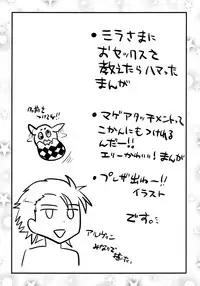 ・ミラさまに
おセックスを
教えたらハマった
まんが
・マグアタッチメントって
こかんにもつけれる
んだー!!
エリーかわいい!まんが
・プレザ出ねー!!
イラスト
です。